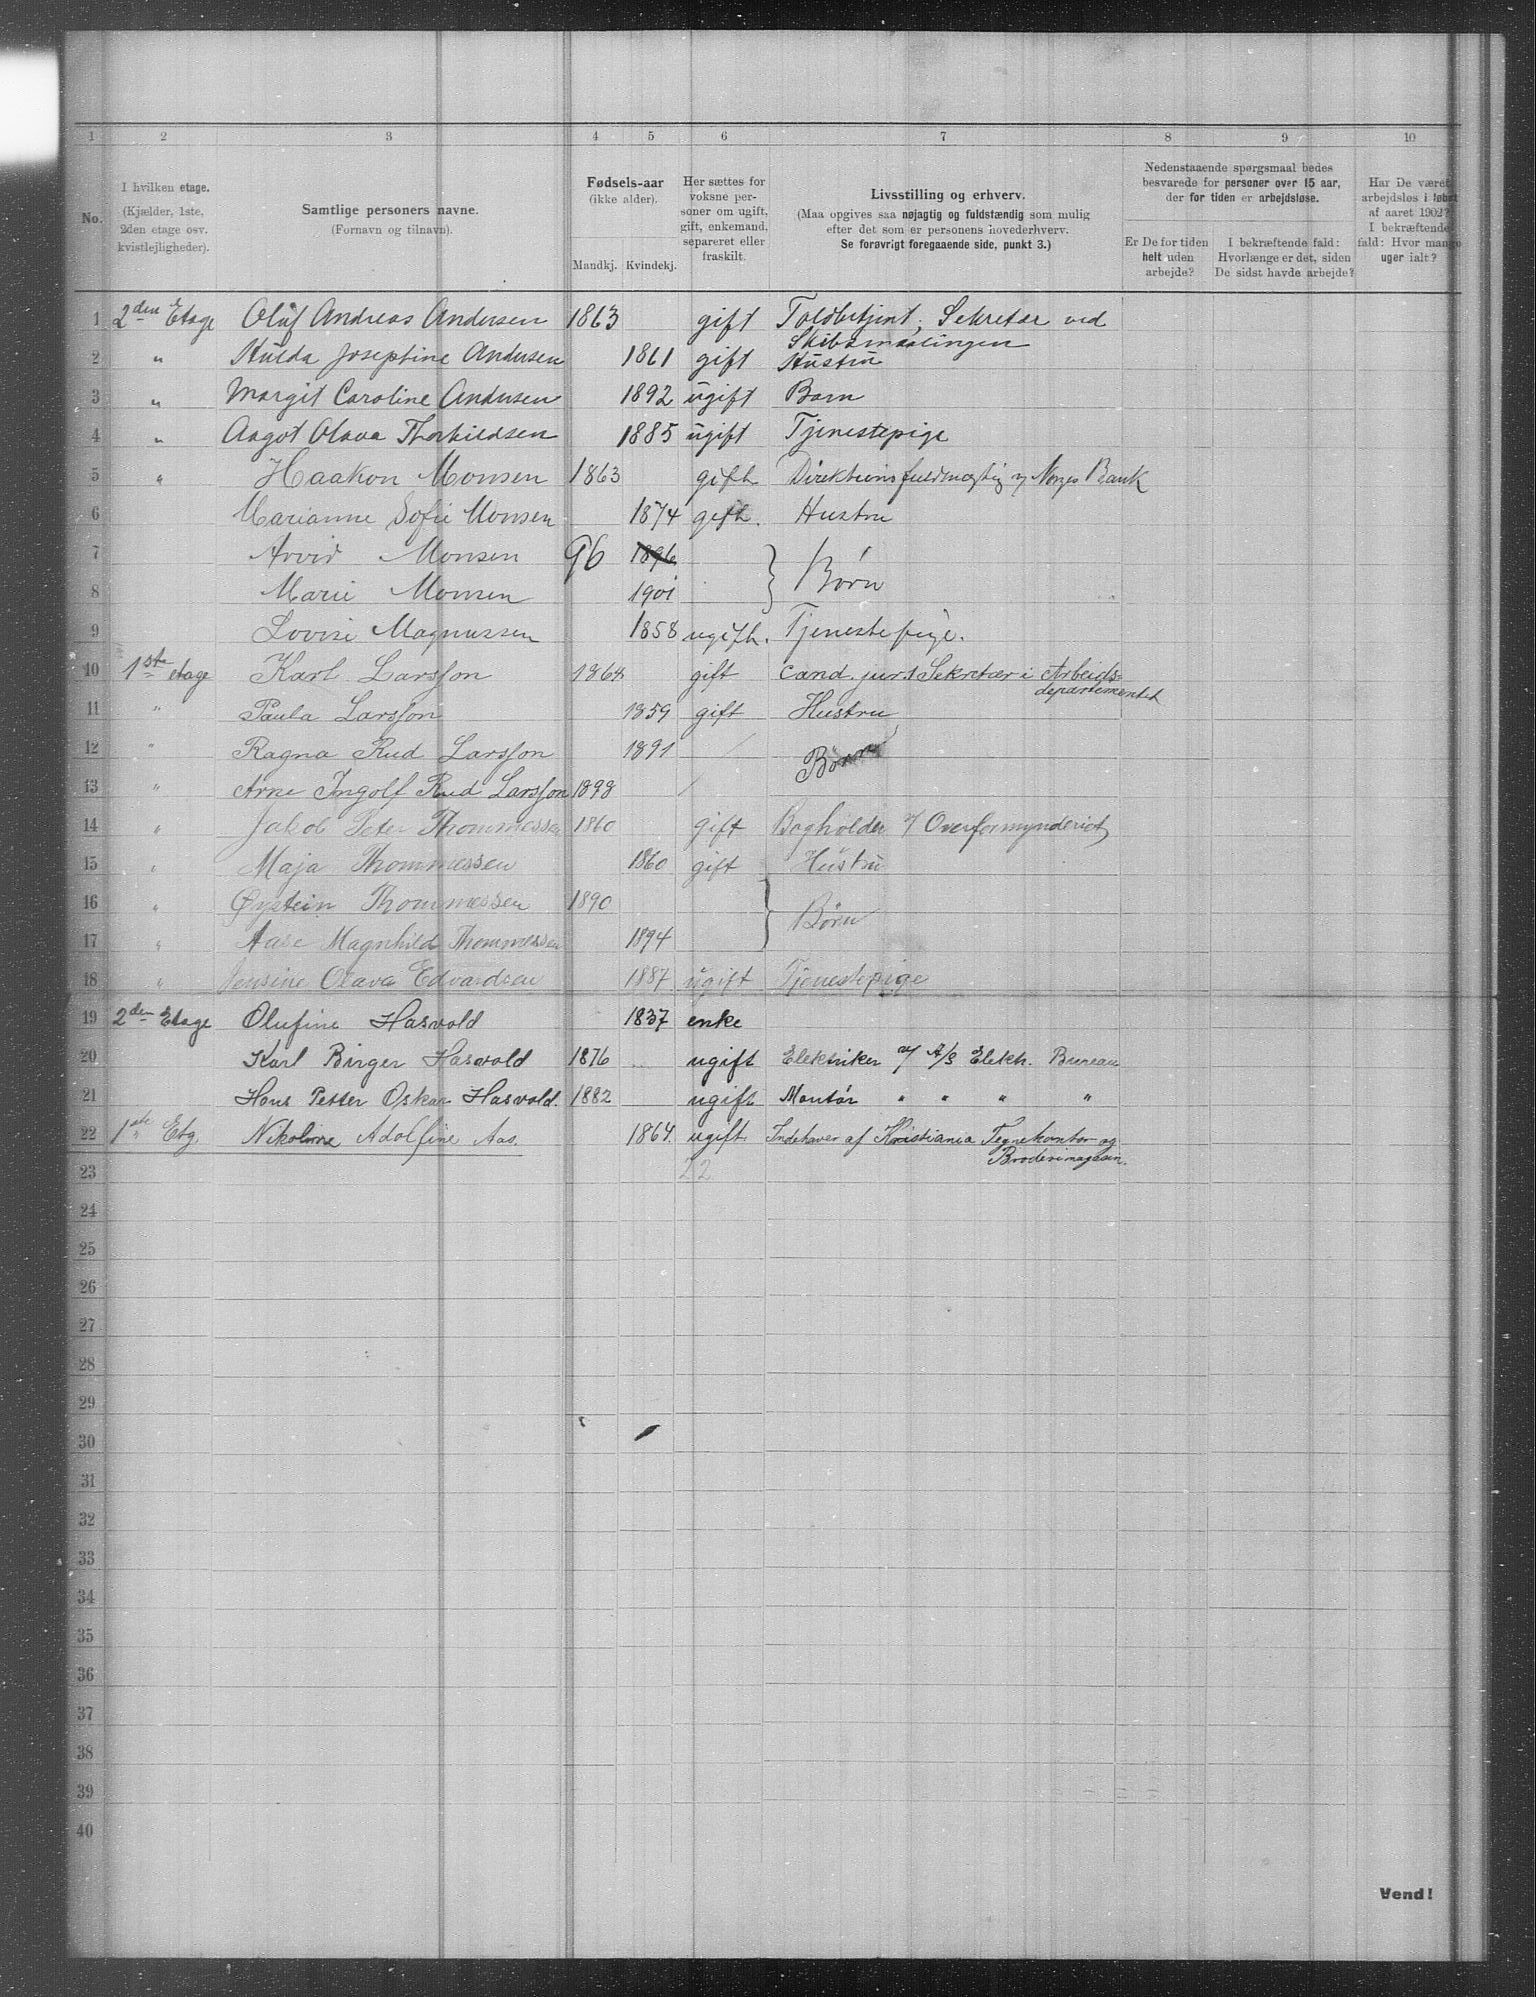 1 2 3 4 5 6 7 8 9 10
No.
I hvilken etage.
(Kjælder, 1ste,
2den etage osv.
kvistlejligheder).
Samtlige personers navne.
(Fornavn og tilnavn).
Fødsels-aar
(ikke alder).
Mandkj. Kvindekj.
Her sættes for
voksne per-
soner om ugift,
gift, enkemand,
separeret eller
fraskilt.
Livsstilling og erhverv.
(Maa opgives saa nøjagtig og fuldstændig som mulig
efter det som er personens hovederhverv.
Se forøvrigt foregaaende side, punkt 3.)
Nedenstaaende spørgsmaal bedes
besvarede for personer over 15 aar,
der for tiden er arbejdsløse.
Er De for tiden
helt uden
arbejde?
I bekræftende fald:
Hvorlænge er det, siden
De sidst havde arbejde?
Har De været
arbejdsløs i løbet
af aaret 1902?
I bekræftende
fald: Hvor mange
uger ialt?
1 2den Etage Oluf Andreas Andersen 1863 gift Toldbetjent, Sekretær ved
Skibsmaalingen
2 " Hulda Josephine Andersen 1861 gift Hustru
3 " Margit Caroline Andersen 1892 ugift Barn
4 " Aagot Olava Thorkildsen 1885 ugift Tjenestepige
5 " Haakon Monsen 1863 gift Direktionsfuldmægtig v/ Norges Bank
6 Marianne Sofie Monsen 1874 gift. Hustru
7 Arvid Monsen 96 1896
8 Marie Monsen 1901 Børn
9 Lovise Magnussen 1858 ugift. Tjenestepige.
10 1ste etage Karl Larsson 1864 gift cand. jur. Sekretær i Arbeids-
departementet
11 " Paula Larsson 1859 gift Hustru
12 " Ragna Rud Larsson 1891 / Børn
13 " Arne Ingolf Rud Larsson 1898 /
14 " Jakob Peter Thommessen 1860 gift Bogholder v/ Overformynderiet
15 " Maja Thommessen 1860 gift Hustru
16 " Øystein Thommessen 1890 Børn
17 " Aase Magnhild Thommessen 1894
18 " Jensine Olava Edvardsen 1887 ugift Tjenestepige
19 2den Etage Olufine Hasvold 1837 enke
20 Karl Birger Hasvold 1876 ugift Elektriker v/ A/S Elektr. Bureau
21 Hans Petter Oskar Hasvold. 1882 ugift Montør " " " "
22 1ste Etg Nikoline Adolfine Aas. 1864. ugift Indehaver af Kristiania Tegnekontor og
Broderimagasin.
23 22
24
25
26
27
28
29
30
31
32
33
34
35
36
37
38
39
40
Vend!